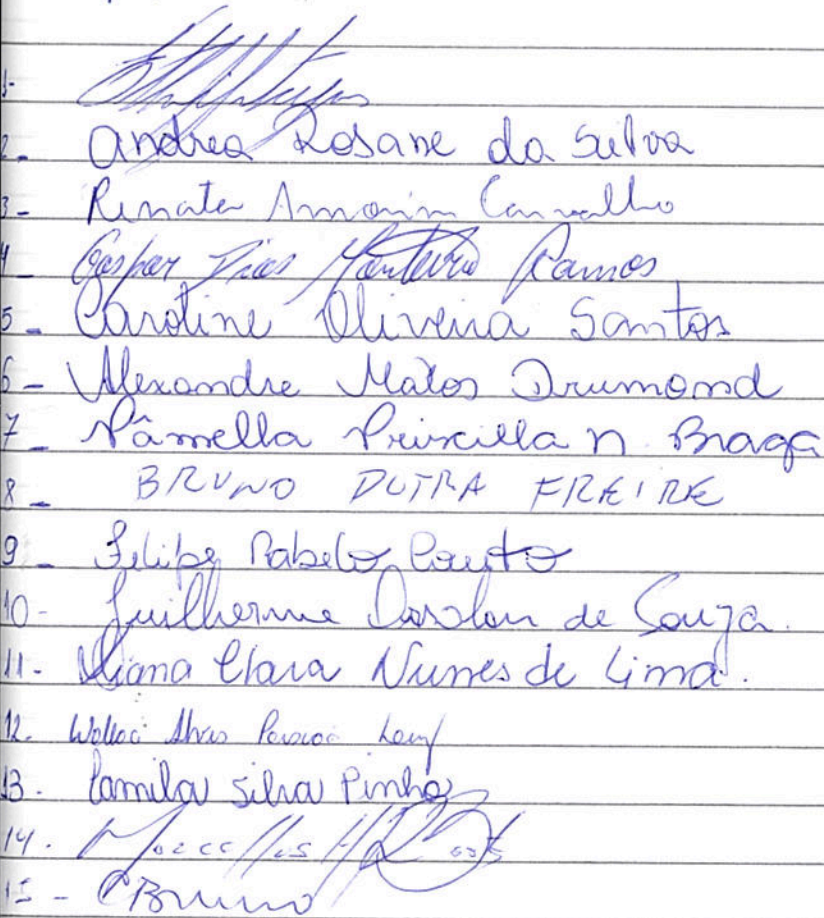 1-
2- Andrea Rosane da Silva
3- Renata Amorim Carvalho
4- Gaspar Dias Monteiro Ramos
5- Caroline Oliveira Santos
6- Alexandre Matos Drumond
7- Pâmella Priscilla N. Braga
8- BRUNO DUTRA FREIRE
9- Felipe Rabelo Couto
10- Guilherme de Souza.
11. Diana Clara Nunes de Lima.
12. Alves
13. Camila Silva Pinho
14.
15- Bruno